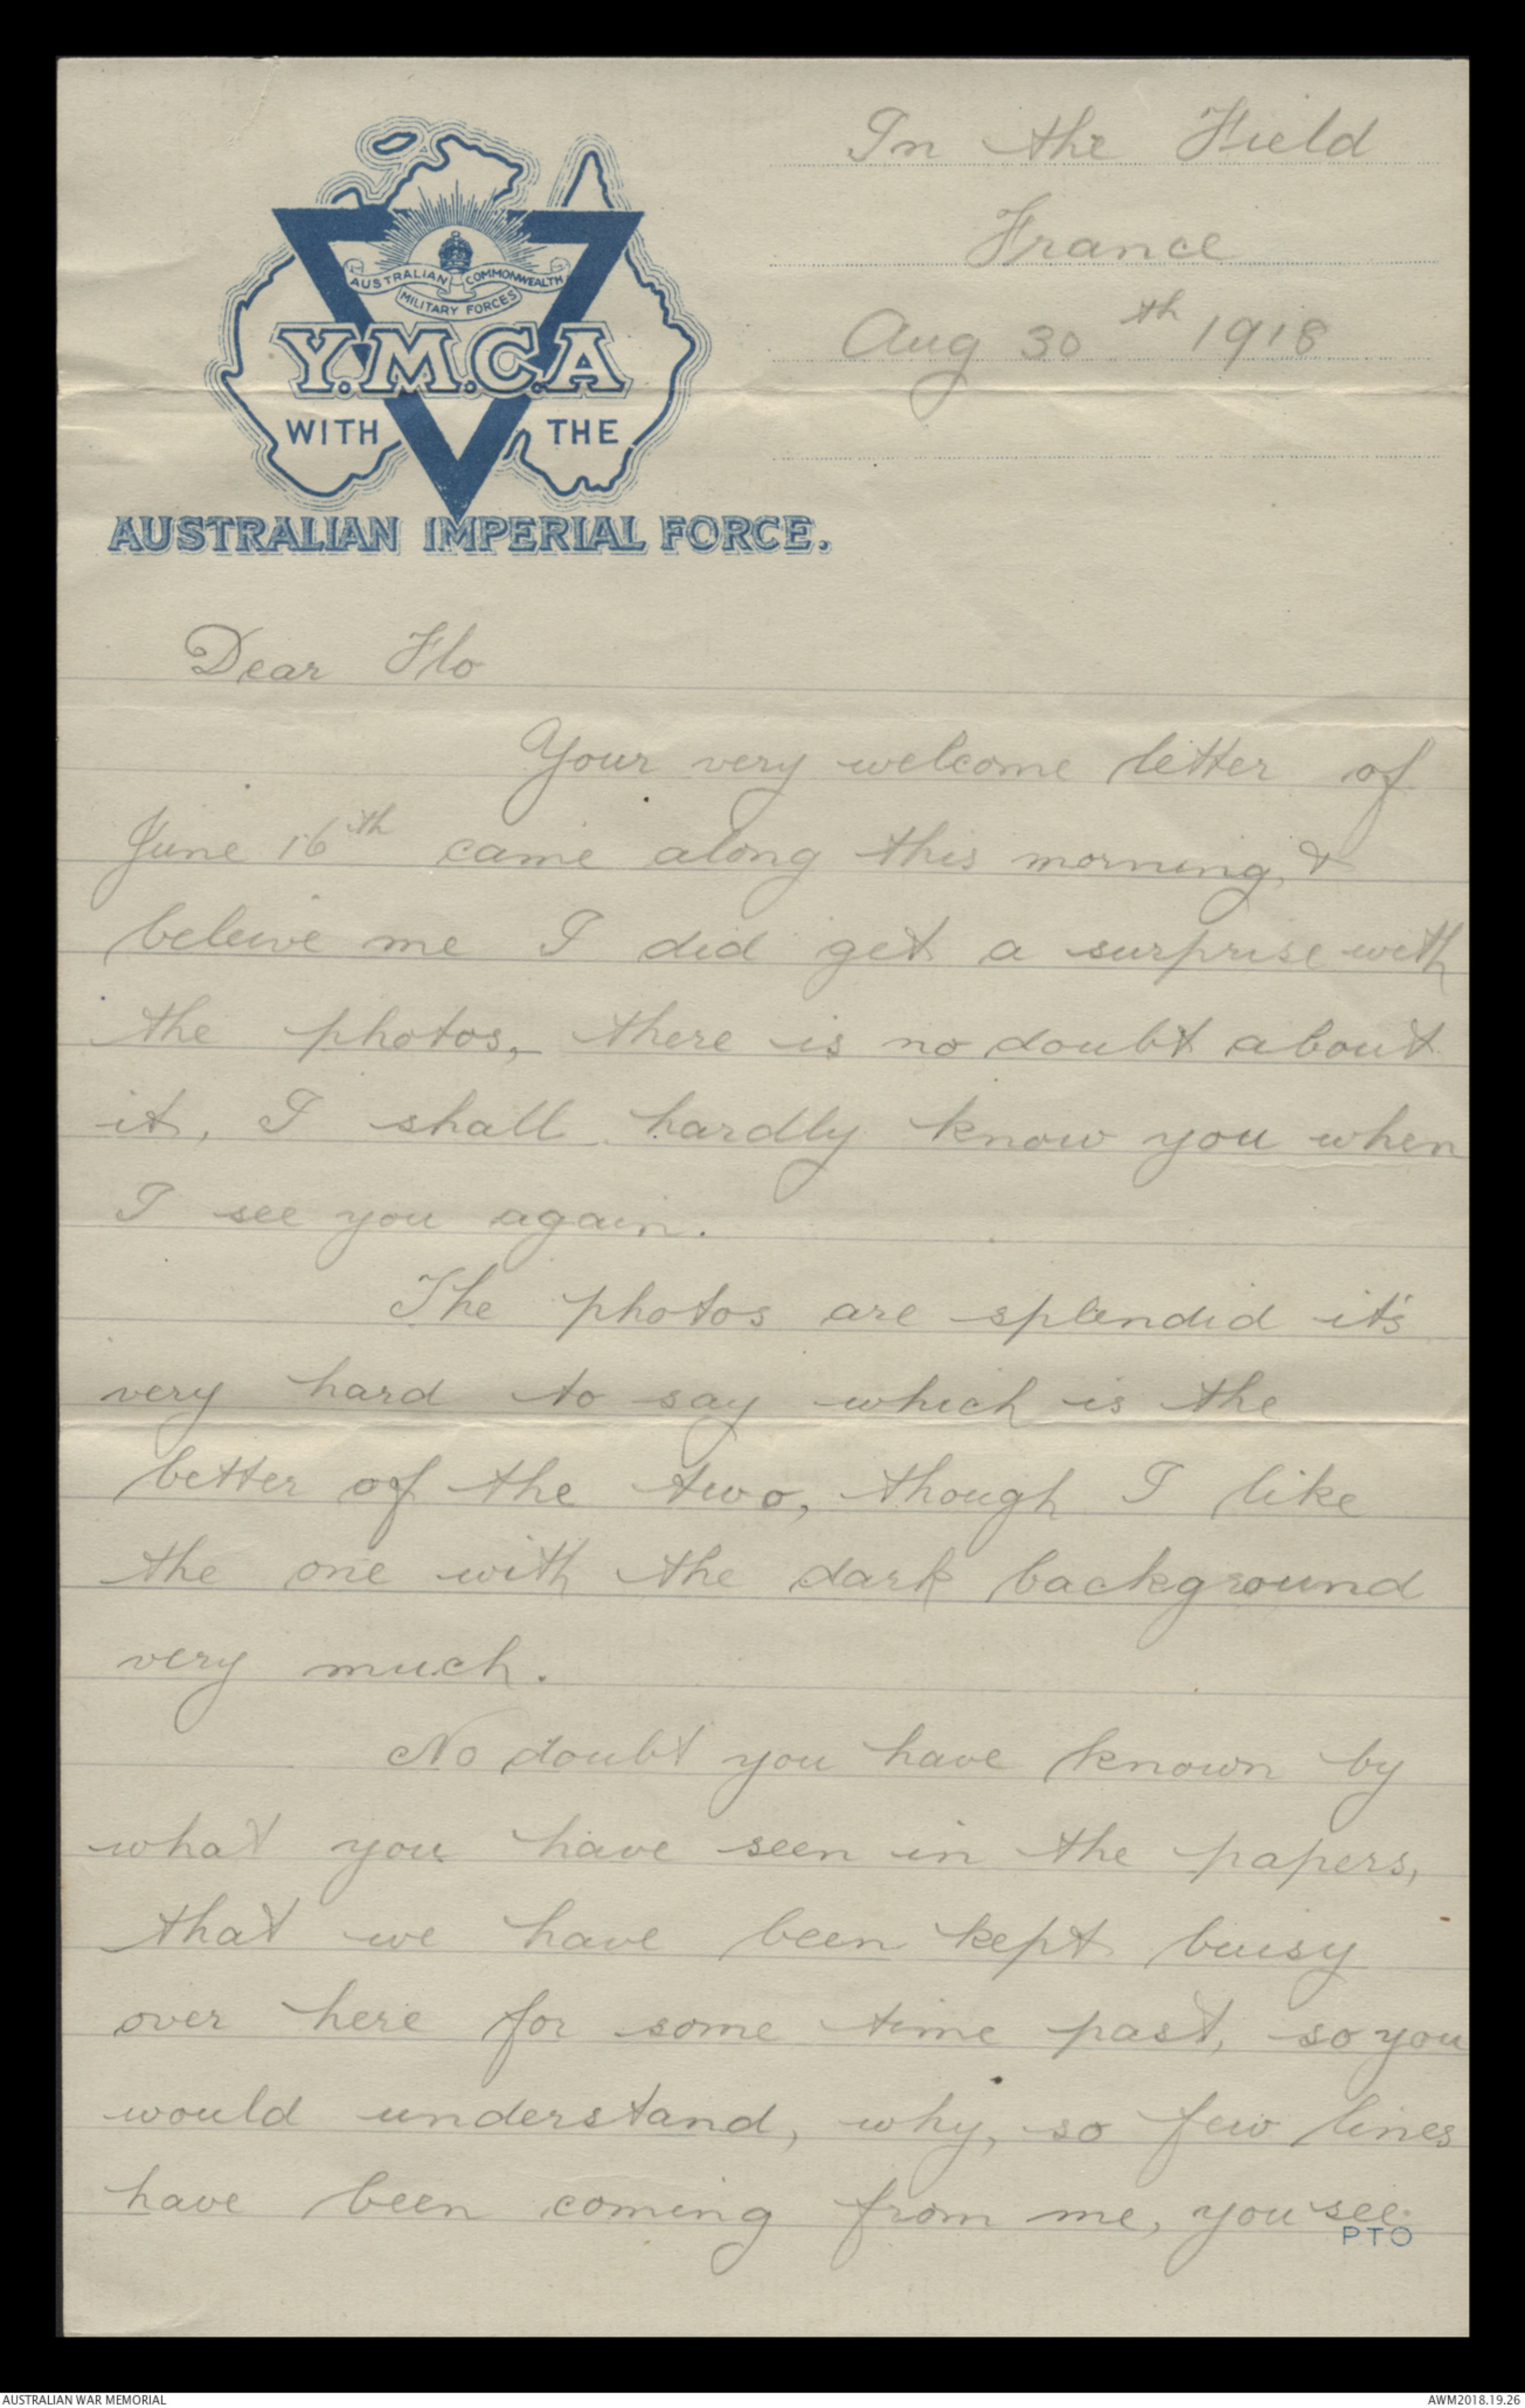 In the Field
France
Aug 30th 1918
AUSTRALIAN COMMONWEALTH
MILITARY FORCES
Y.M.C.A
WITH THE
AUSTRALIAN IMPERIAL FORCE.
Dear Flo
Your very welcome letter of
June 16th came along this morning, &
beleive me I did get a surprise with
the photos, there is no doubt about
it, I shall hardly know you when
I see you again.
The photos are splendid it's
very hard to say which is the
better of the two, though I like
the one with the dark background
very much.
No doubt you have known by
what you have seen in the papers,
that we have been kept buisy
over here for some time past, so you
would understand, why, so few lines
have been coming from me, you see
PTO
AUSTRALIAN WAR MEMORIAL
AWM2018.19.26